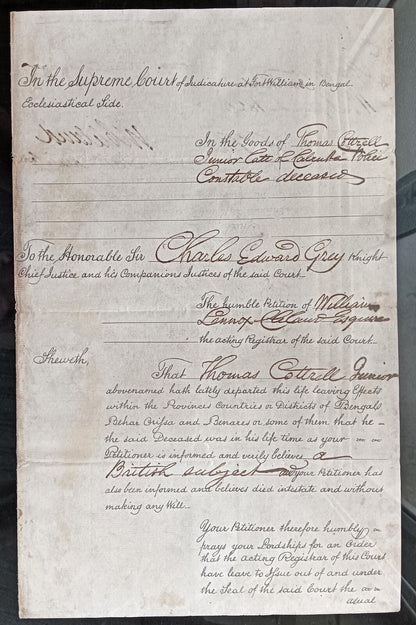 In the Supreme Court of Judicature at Fort William in Bengal
Ecclesiastical Side.
In the Goods of Thomas Cottrell
Junior Late of Calcutta Police
Constable deceased
To the Honorable Sir Charles Edward Grey Knight
Chief Justice and his Companions Justices of the said Court
The humble Petition of William
Lennox Esquire
the acting Registrar of the said Court
Sheweth,
That Thomas Cottrell Junior
abovenamed hath lately departed this life leaving Effects
within the Provinces Countries or Districts of Bengal
Bahar Orissa and Benares or some of them that he
the said Deceased was in his life time as your
Petitioner is informed and verily believes a
British subject and your Petitioner has
also been informed and believes died intestate and without
making any Will
Your Petitioner therefore humbly
prays your Lordships for an Order
that the acting Registrar of this Court
have leave to Issue out of and under
the Seal of the said Court the
usual